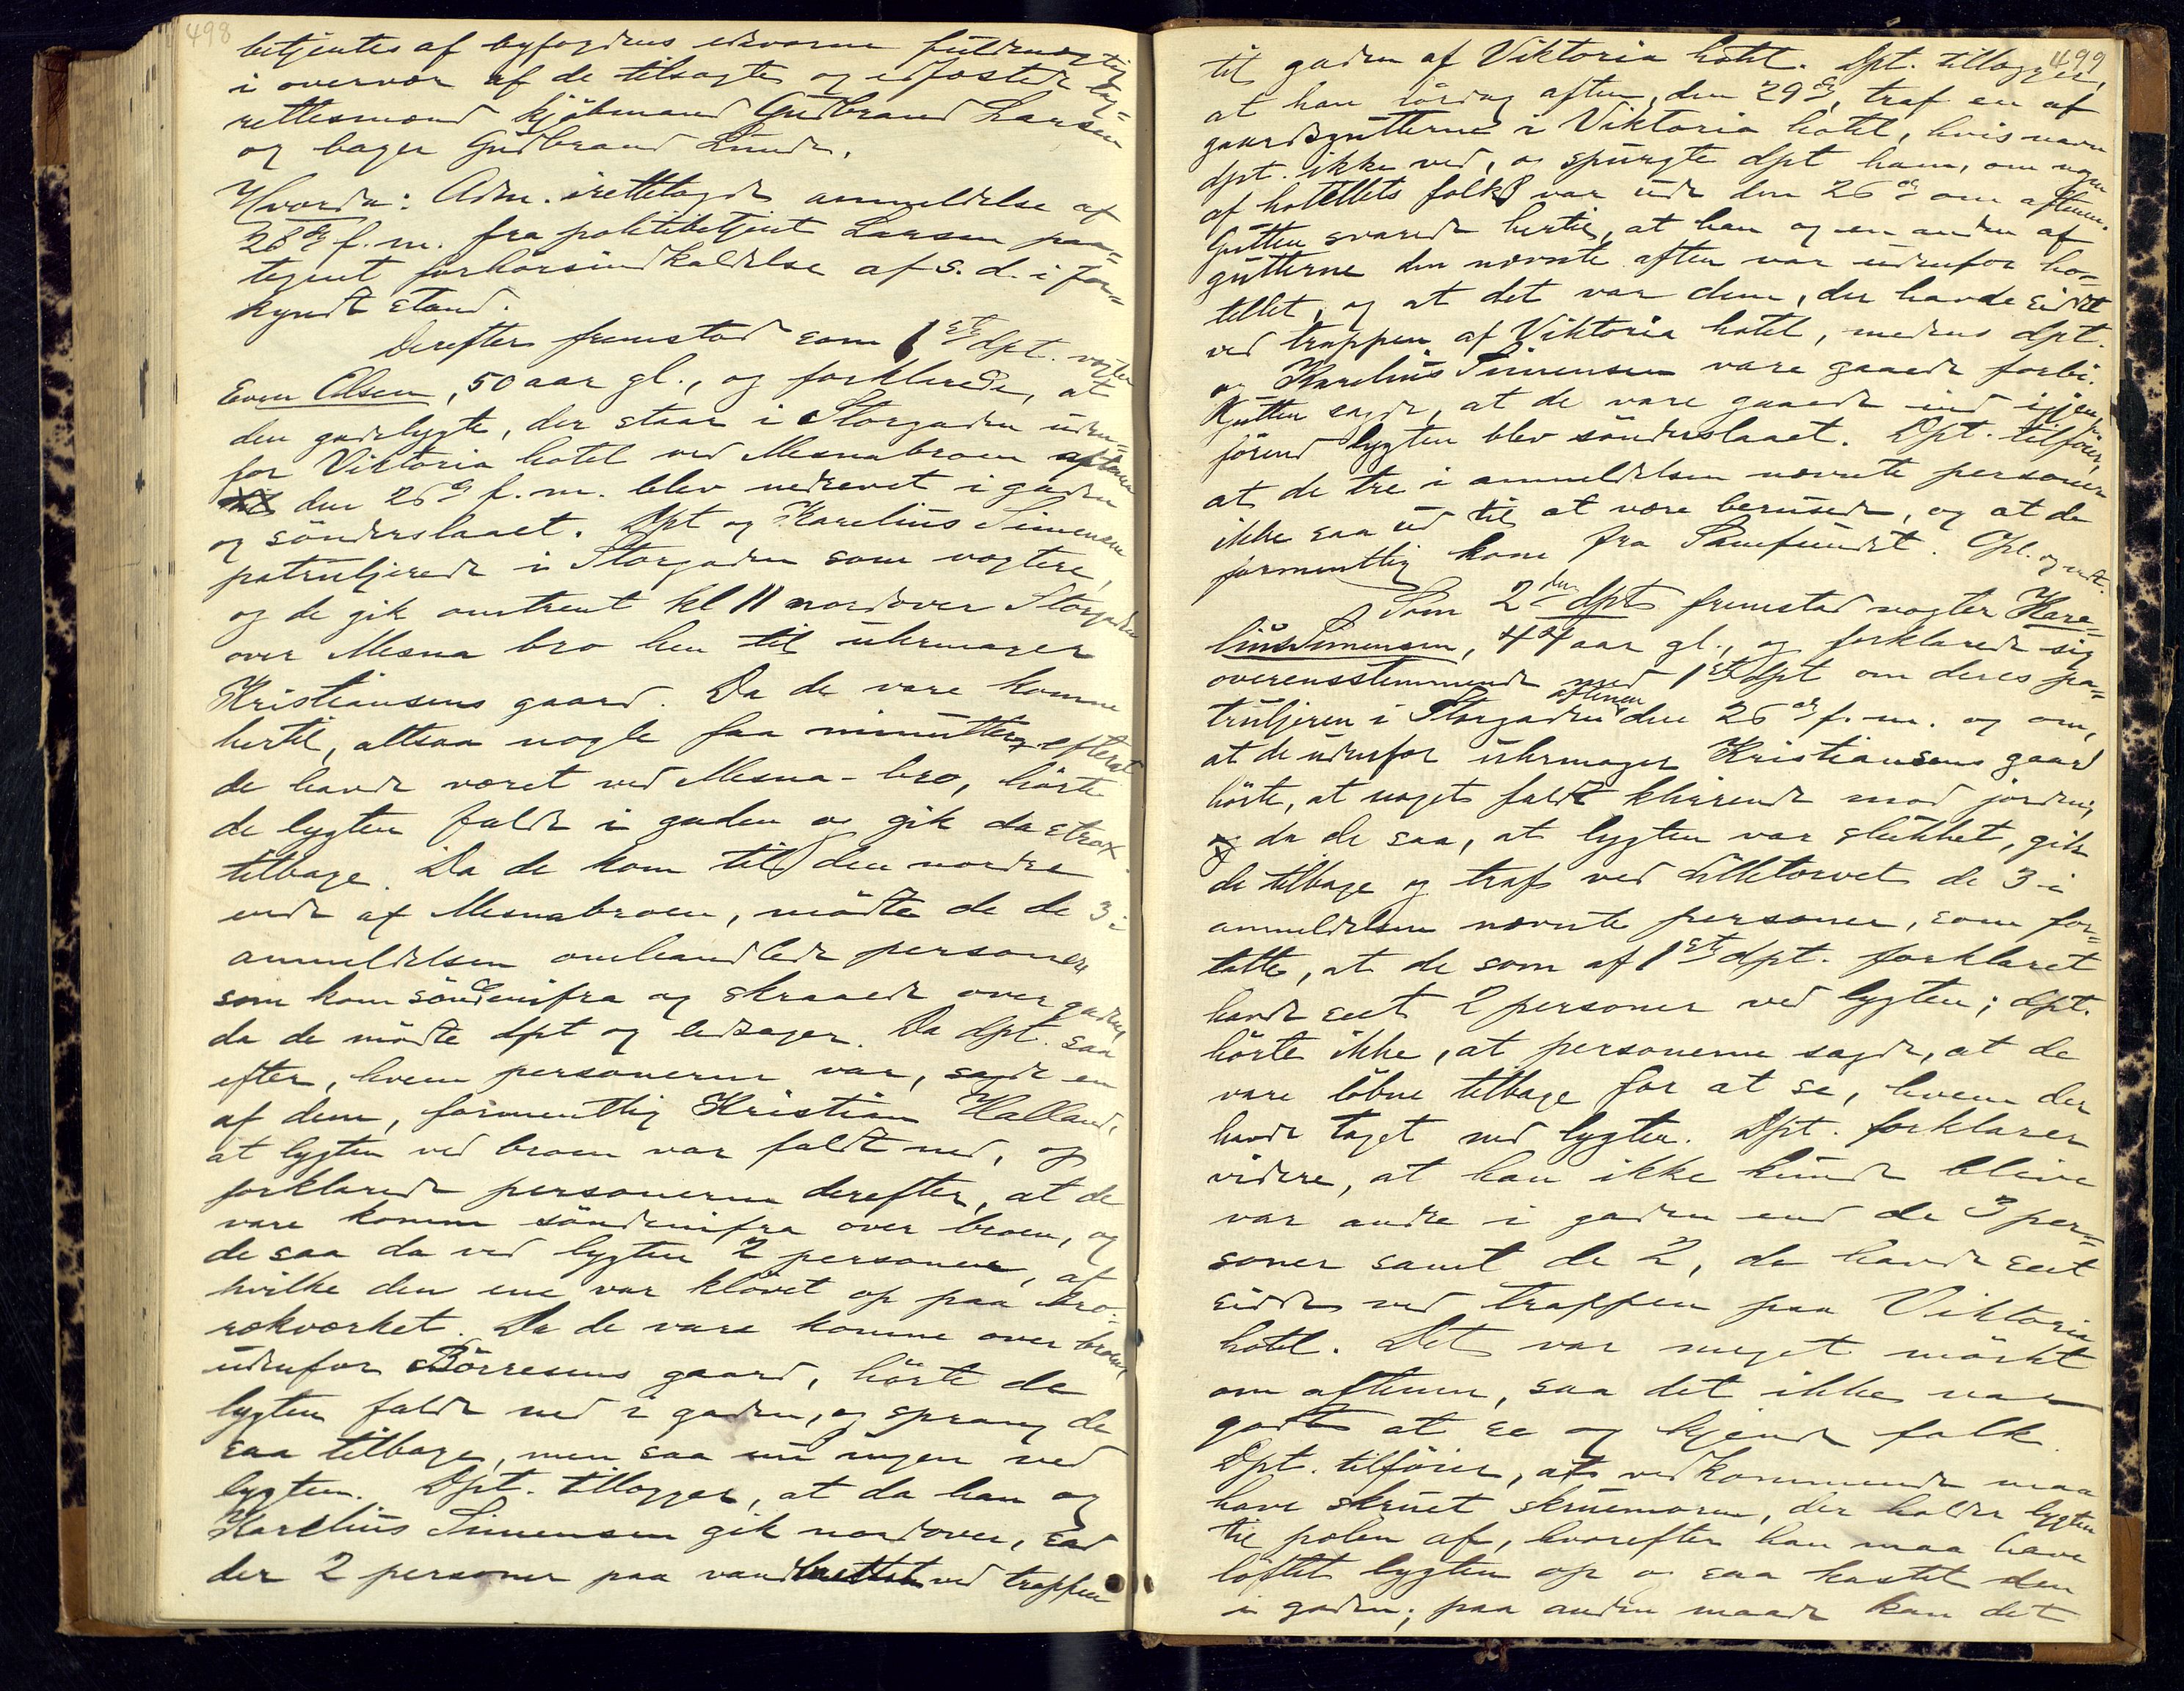 498
betjentes af byfogdens edsvorne fuldmægtig
i overvær af de tilsagte og edfæstede lag-
rettesmænd kjöbmand Gudbrand Larsen
og bager Gudbrand Lunde.
Hvorda: Adm. irettelagde anmeldelse af
28de f. m. fra politibetjent Larsen paa-
tegnet forhörsindkaldelse af s. d. i for-
kyndt stand.
Derefter fremstod som 1ste dpt. vægter
Even Olsen, 50 aar gl., og forklarede, at
den gadelygte, der staar i Storgaden uden-
for Viktoria hotel ved Mesnabroen aftenen
den 26de f. m. blev nedrevet i gaden
og sönderslaaet. Dpt og Karelius Simensen
patruljerede i Storgaden som vægtere,
og de gik omtrent kl 11 nordover Storgaden
over Mesna bro hen til uhrmager
Kristiansens gaard. Da de vare komne
hertil, altsaa nogle faa minutter efterat
de havde været ved Mesna-bro, hörte
de lygten falde i gaden og gik da strax
tilbage. Da de kom til den nordre
ende af Mesnabroen, mödte de de 3 i
anmeldelsen omhandlede personer
som kom söndenifra og skraaede over gaden,
da de mödte dpt og ledsager. Da dpt. saa
efter, hvem personerne var, sagde en
af dem, formentlig Kristian Halland,
at lygten ved broen var faldt ned, og
forklarede personerne derefter, at de
vare komne söndenifra over broen, og
de saa da ved lygten 2 personer, af
hvilke den ene var klövet op paa bro-
rækværket. Da de vare komne over broen,
udenfor Börresens gaard, hörte de
lygten falde ned i gaden, og sprang de
saa tilbage, men saa nu ingen ved
lygten. Dpt. tillægger, at da han og
Karelius Simensen gik nordover, sad
der 2 personer paa vandbrettet ved trappen
499
til gaden af Viktoria hotel. Dpt. tillægger,
at han lördag aften, den 29de, traf en af
gaardsgutterne i Viktoria hotel, hvis navn
dpt. ikke ved, og spurgte dpt ham, om nogen
af hotellets folk var ude den 26de om aftenen.
Gutten svarede hertil, at han og en anden af
gutterne den nævnte aften var udenfor ho-
tellet, og at det var dem, der havde siddet
ved trappen af Viktoria hotel, medens dpt.
og Karelius Simensen vare gaaede forbi.
Gutten sagde, at de vare gaaede ind igjen,
förend lygten blev sönderslaaet. Dpt. tilföier,
at de tre i anmeldelsen nævnte personer
ikke saa ud til at være berusede, og at de
formentlig kom fra Samfundet. Opl. og vedt.
Som 2den dpt fremstod vægter Kare-
lius Simensen, 44 aar gl., og forklarede sig
overensstemmende med 1ste dpt om deres pa-
truljeren i Storgaden aftenen den 26de f. m. og om,
at de udenfor uhrmager Kristiansens gaard
hörte, at noget faldt klirrende mod jorden,
og da de saa, at lygten var slukket, gik
de tilbage og traf ved Lilletorvet de 3 i
anmeldelsen nævnte personer, som for-
talte, at de som af 1ste dpt. forklaret
havde seet 2 personer ved lygten; dpt.
hörte ikke, at personerne sagde, at de
vare löbne tilbage for at se, hvem der
havde taget ned lygten. Dpt. forklarer
videre, at han ikke kunde blive
var andre i gaden end de 3 per-
soner samt de 2, de havde seet
sidde ved trappen paa Viktoria
hotel. Det var meget mörkt
om aftenen, saa det ikke var
godt at se og kjende folk.
Dpt. tilföier, at vedkommende maa
have skruet skruemoren, der holder lygten
til pælen af, hvorefter han maa have
löftet lygten op og saa kastet den
i gaden; paa anden maade kan det